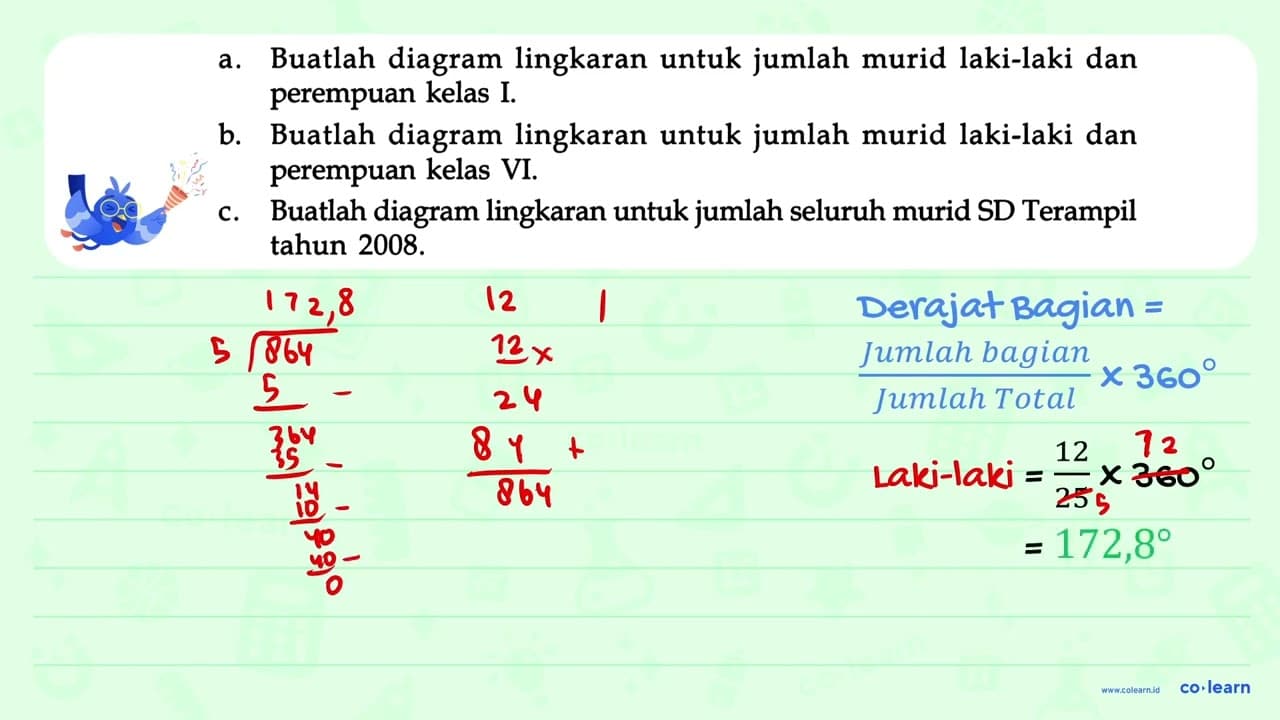 a. Buatlah diagram lingkaran untuk jumlah murid laki-laki dan
perempuan kelas I.
b. Buatlah diagram lingkaran untuk jumlah murid laki-laki dan
perempuan kelas VI.
c. Buatlah diagram lingkaran untuk jumlah seluruh murid SD Terampil
tahun 2008.
172,8
5 864
5 -
364
35 -
14
10 -
40
40 -
0
12 1
72 x
24
84 +
864
Derajat Bagian =
Jumlah bagian
Jumlah Total
x 360°
72
Laki-laki = 12/25 x 360°
5
= 172,8°
www.colearn.id co·learn